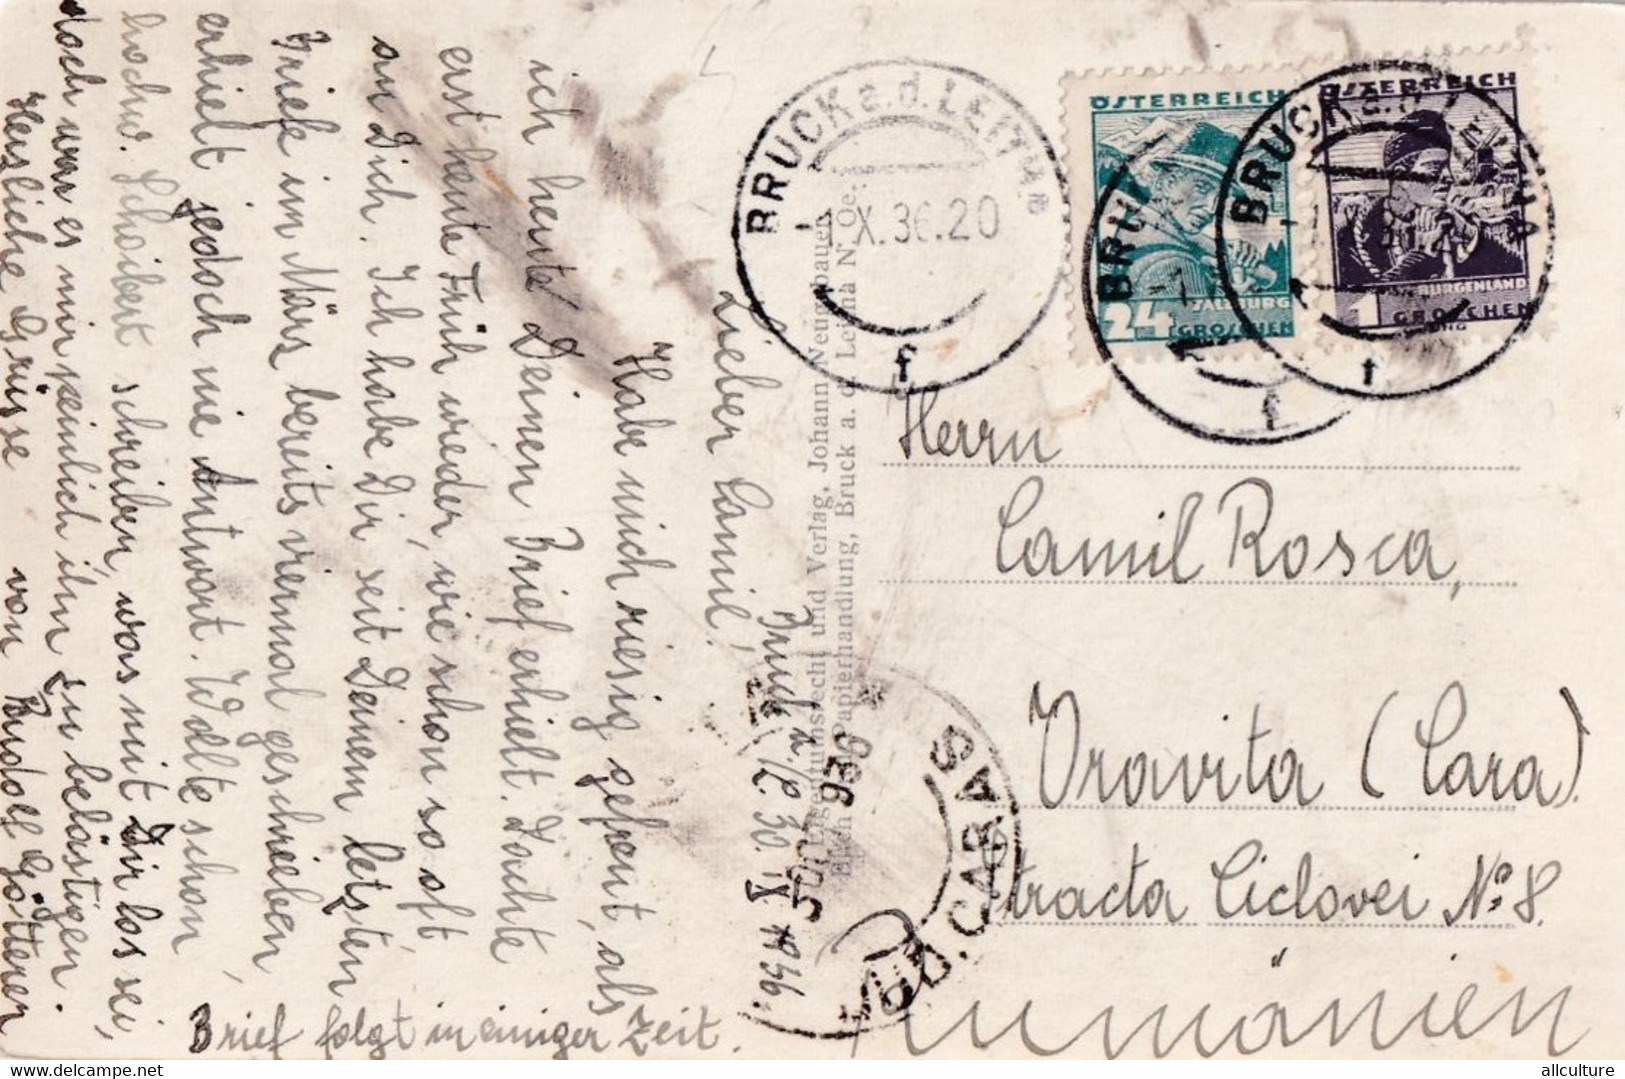 Bruck a. /L 30. IX 1936.
Lieber Camil!
Habe mich riesig gefreut, als
ich heute Deinen Brief erhielt. Dachte
erst heute Früh wieder, wie schon so oft
an Dich. Ich habe Dir seit Deinem letzten
Briefe im März bereits viermal geschrieben
erhielt jedoch nie Antwort. Wollte schon
hochw. Schoibert schreiben, was mit Dir los sei,
doch war es mir peinlich ihn zu belästigen.
Herzliche Grüsse von Rudolf
Brief folgt in einiger Zeit.
Eigentumsrecht und Verlag, Johann Neugebauer,
Papierhandlung, Bruck a. d. Leitha N. Oe.
BRUCK a. d. LEITHA
-1.X.36.20
f
ÖSTERREICH
SALZBURG
24 GROSCHEN
BRUCK
f
ÖSTERREICH
BURGENLAND
1 GROSCHEN
BRUCK a. d. LEITHA
f
Herrn
Camil Rosca,
Oravita (Caras).
Strada Ciclovei No 8.
Rumänien
JUD. CARAS
936
delcampe.net
allculture